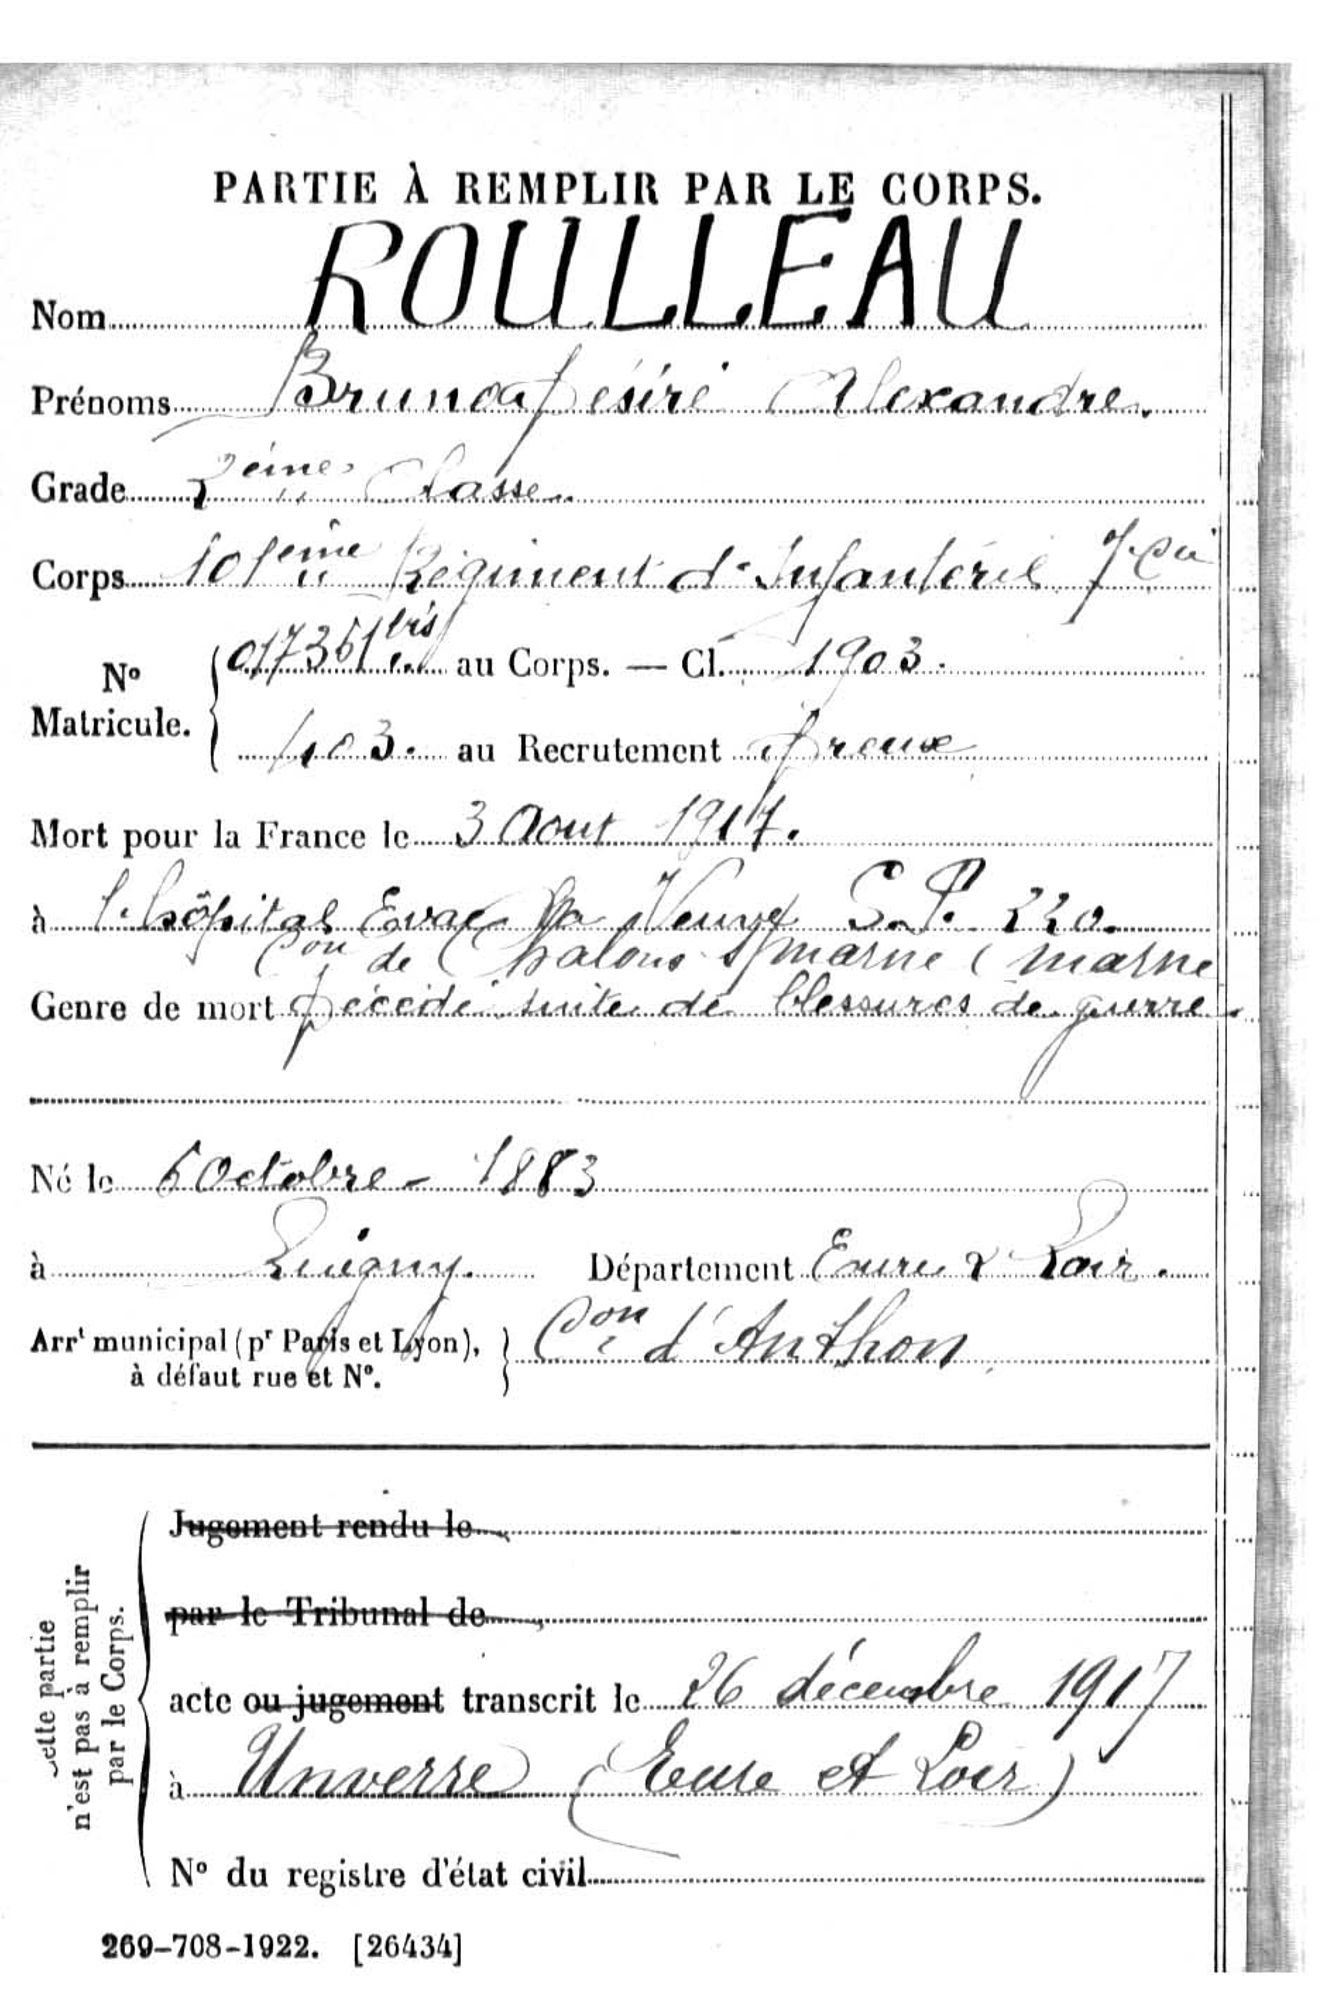 PARTIE À REMPLIR PAR LE CORPS.
Nom ROULLEAU
Prénoms Bruno Désiré Alexandre.
Grade 2ème Classe.
Corps 101ème Régiment d'Infanterie 7 Cie
No Matricule. 017351 bis au Corps. — Cl. 1903.
403. au Recrutement Dreux
Mort pour la France le 3 Aout 1917.
à l'hôpital Evac La Veuve S.P. 220.
Con de Chalons s/marne (marne
Genre de mort Décédé suite de blessures de guerre
Né le 6 Octobre - 1883
à Luigny. Département Eure & Loir.
Arrt municipal (pr Paris et Lyon), à défaut rue et No. Con d'Anthon
Cette partie n'est pas à remplir par le Corps.
Jugement rendu le
par le Tribunal de
acte ou jugement transcrit le 26 décembre 1917
à Unverre (Eure et Loir)
No du registre d'état civil
269-708-1922. [26434]